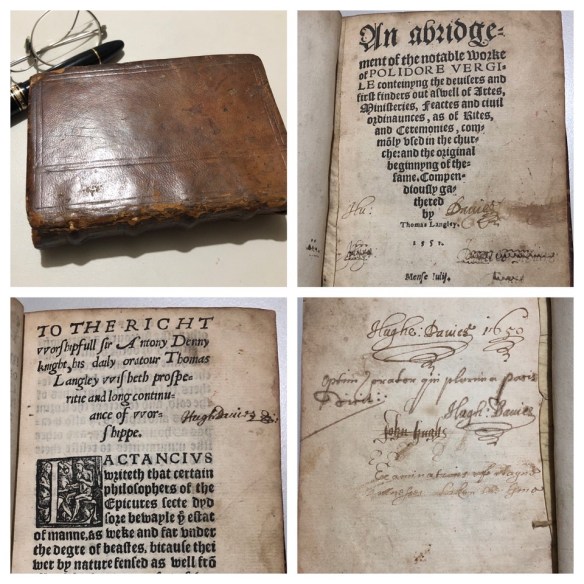 An abridge-
ment of the notable worke
of POLIDORE VERGI-
LE conteinyng the deuisers and
first finders out aswell of Artes,
Ministeries, Feactes and ciuil
ordinaunces, as of Rites,
and Ceremonies, com-
mõly vsed in the chur-
che: and the original
beginnyng of the-
same. Compen-
diously ga-
thered
by
Hu: Davies
Thomas Langley.
1551.
Mense Iulij.
TO THE RIGHT
vvorshipfull sir Antony Denny
knight, his daily oratour Thomas
Langley vvisheth prospe-
ritie and long continu-
ance of vvor-
shippe.
Hugh Davies
LACTANCIVS
writeth that certain
philosophers of the
Epicures secte dyd
sore bewayle ẏ estat
of manne, as weke and far vnder
the degre of beastes, bicause thei
wer by nature fensed as well frõ
Hughe: Davies 1650
Hugh: Davies
John hughs
Examinations